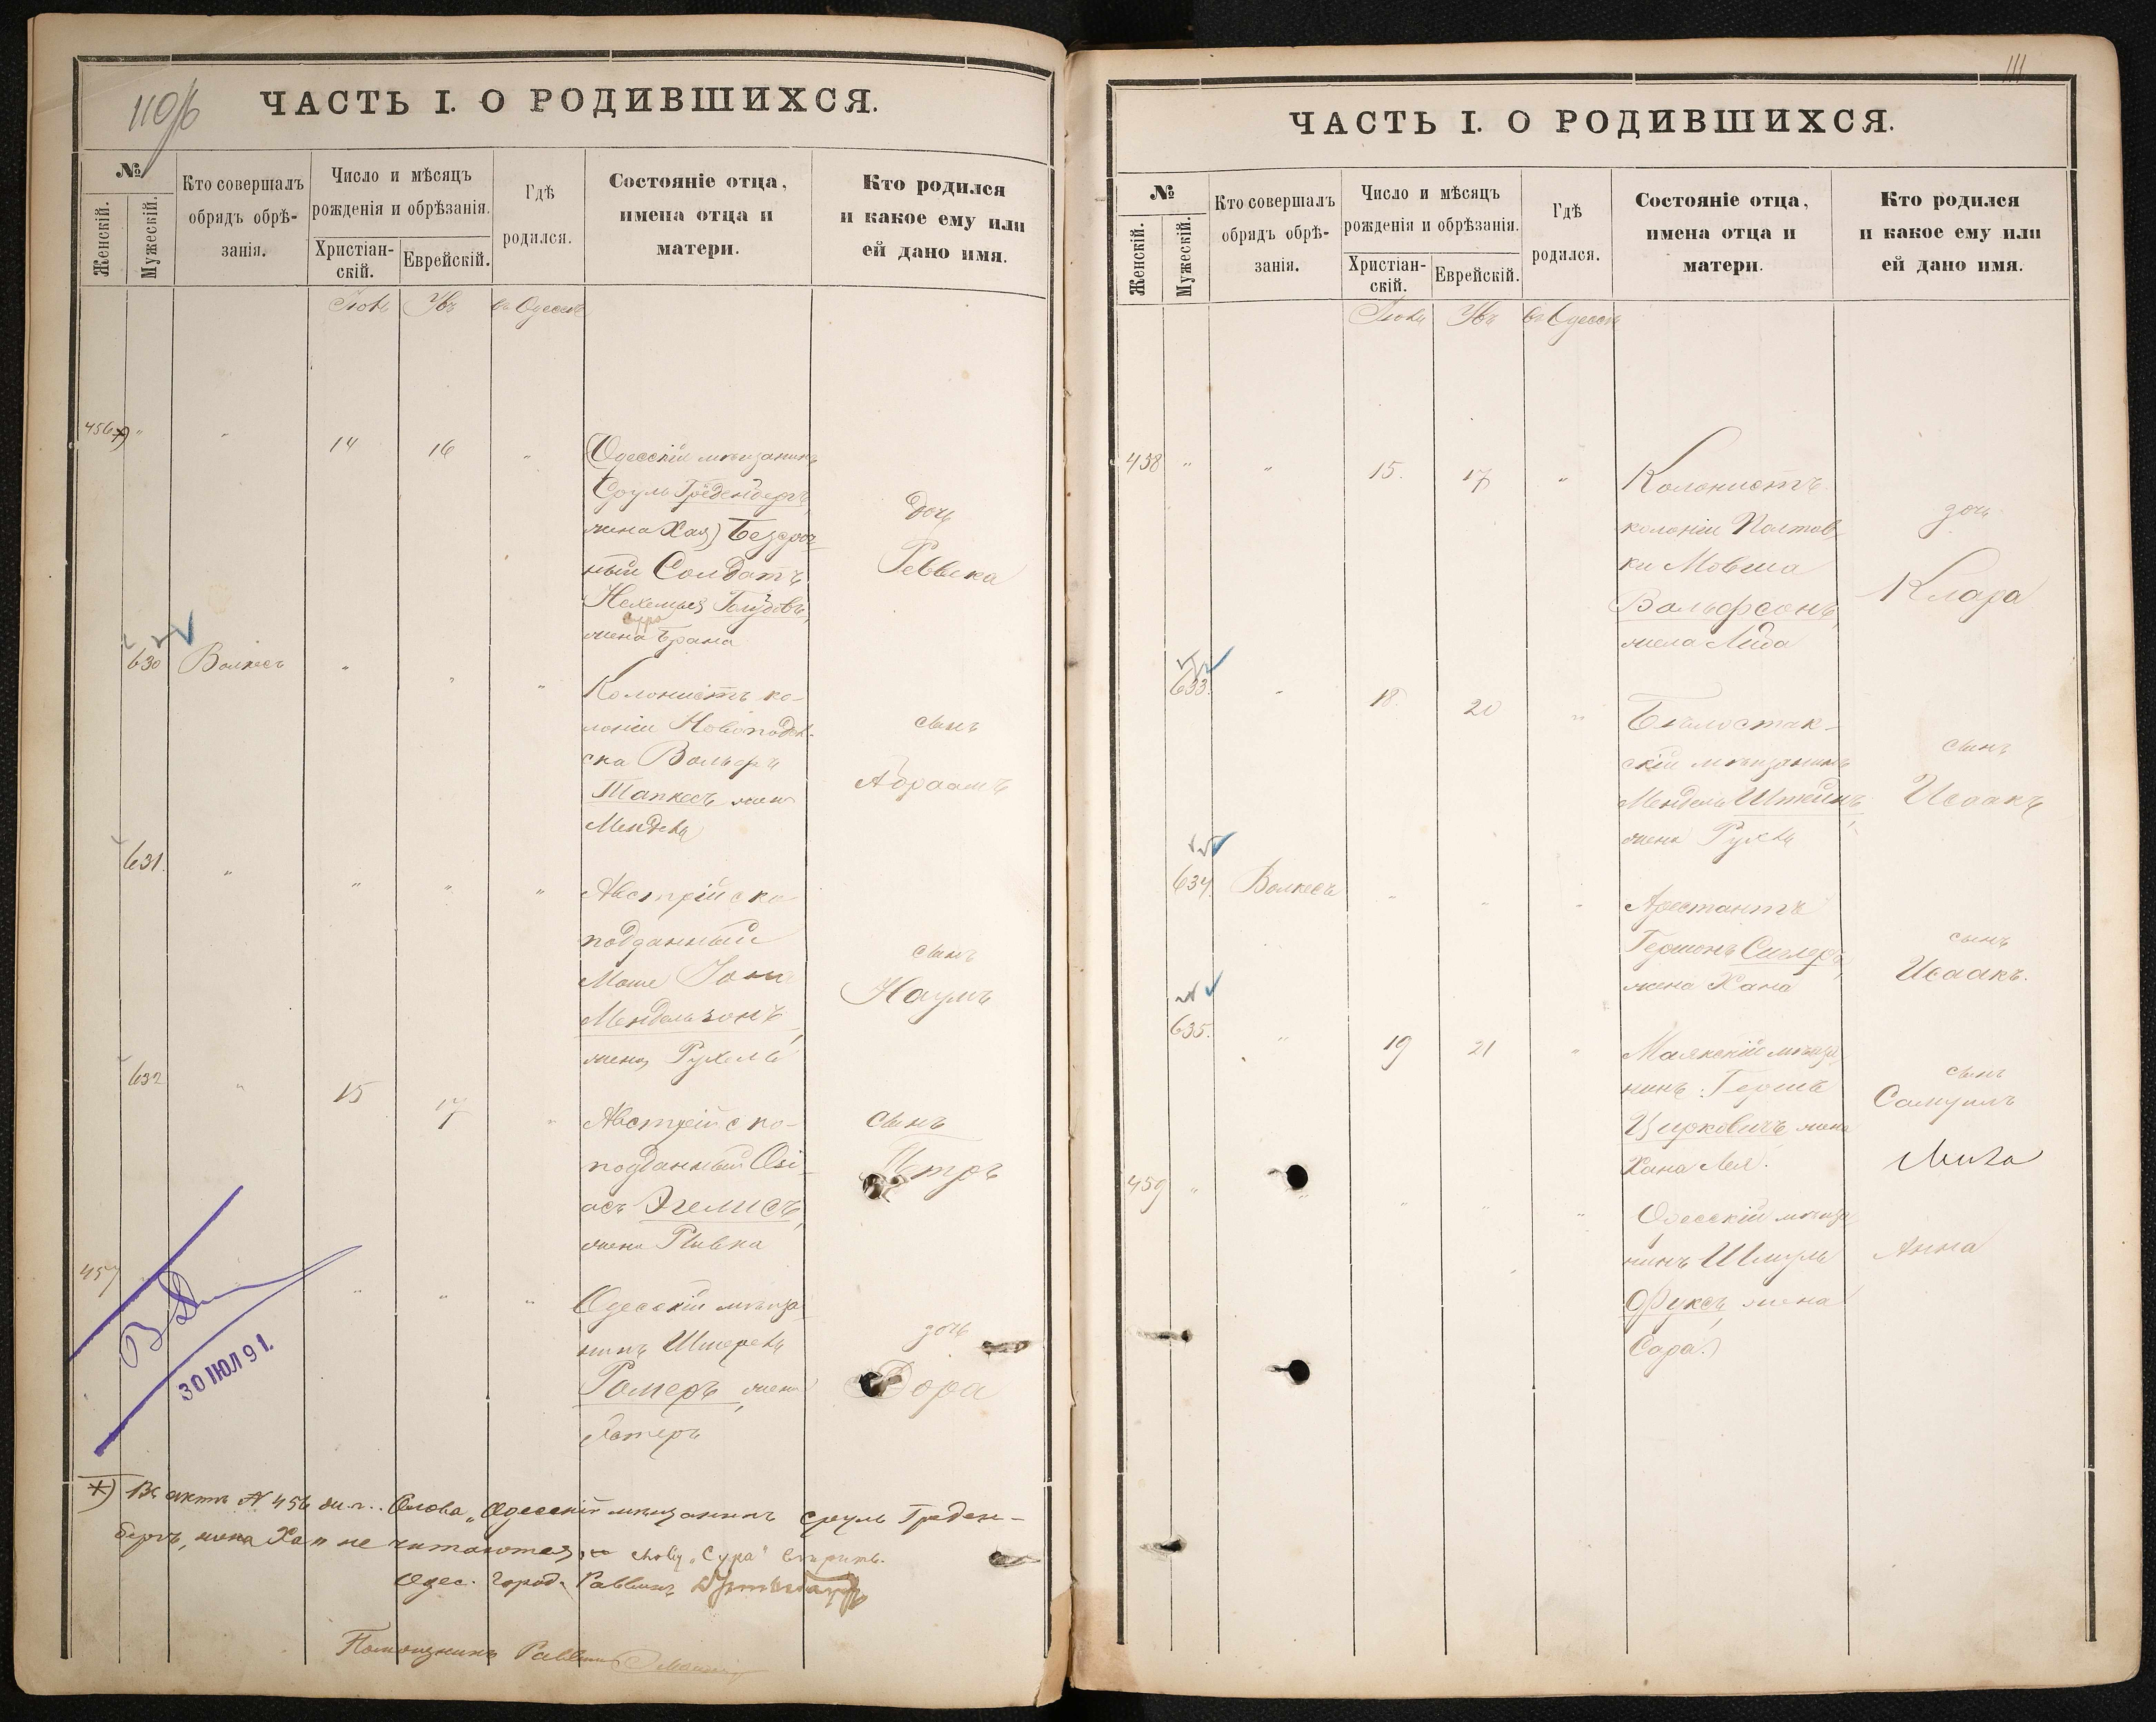 110/б
ЧАСТЬ I. О РОДИВШИХСЯ.
№
Женскій.
Мужескій.
Кто совершалъ
обрядъ обрѣ-
занія.
Число и мѣсяцъ
рожденія и обрѣзанія.
Христіан-
скій.
Еврейскій.
Гдѣ
родился.
Состояніе отца,
имена отца и
матери.
Кто родился
и какое ему или
ей дано имя.
въ Одессѣ
456 *) " " 14 16 "
Одесскій мѣщанинъ
Сруль Греденбергъ,
жена Хая) Безсроч
ный Солдатъ
Сура
жена
дочь
Реввека
630 Волкесъ " " "
Колонистъ ко-
лоніи
ска Вольфъ
Тапкесъ жена
Мендель
сынъ
Абраамъ
631. " " " "
Австрійско
подданный
Моше Іона
Мендельзонъ,
жена Рухель
сынъ
Наумъ
632 " 15 17 "
Австрійско-
подданный Озі-
асъ Эгелисъ,
жена Ривка
сынъ
Петръ
457 " " "
Одесскій мѣща
нинъ Шмерель
Ромеръ, жена
Эстеръ
дочь
Дора
30 ІЮЛ 91.
*) Въ актѣ № 456 слова "Одесскій мѣщанинъ Сруль Греден-
бергъ, жена Хая не читаются, слову "Сура" вѣрить.
Одес. Город. Раввинъ
Помощникъ Раввина
111
ЧАСТЬ I. О РОДИВШИХСЯ.
№
Женскій.
Мужескій.
Кто совершалъ
обрядъ обрѣ-
занія.
Число и мѣсяцъ
рожденія и обрѣзанія.
Христіан-
скій.
Еврейскій.
Гдѣ
родился.
Состояніе отца,
имена отца и
матери.
Кто родился
и какое ему или
ей дано имя.
въ Одессѣ
458 " " 15. 17 "
Колонистъ
колоніи Полтав
ки Мовша
Вольфсонъ,
жена Лида
дочь
Клара
633. " 18. 20 "
Бѣлосток-
скій мѣщанинъ
Мендель Иткинъ,
жена Рухль
сынъ
Исаакъ
634. Волкесъ " " "
Арестантъ
Гершонъ Сиглеръ,
жена Хана
сынъ
Исаакъ.
635. " 19 21 "
Маякскій мѣща
нинъ Герша
Цирковичъ жена
Хана Лея.
сынъ
Самуилъ
459 " " " " "
Одесскій мѣща
нинъ Шмуль
Фуксъ, жена
Сара.
Анна